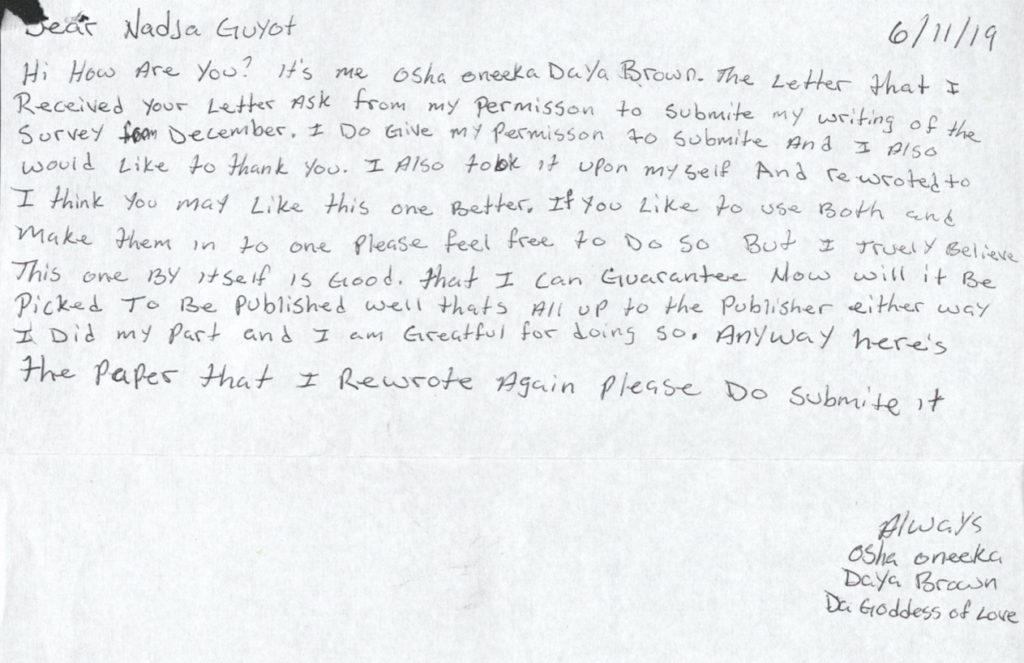 Dear Nadja Guyot
6/11/19
Hi How Are You? It's me Osha oneeka Daya Brown. The Letter that I
Received Your Letter Ask from my Permisson to submite my writing of the
Survey from December. I Do Give my Permisson to submite And I Also
would Like to thank You. I Also took it upon myself And rewroted to
I think You may Like this one Better. If You Like to use Both and
make them in to one Please feel free to Do so But I Truely Believe
This one By itself is Good. that I can Guarantee Now will it Be
Picked To Be Published well thats All up to the Publisher either way
I Did my Part and I am Greatful for doing so. Anyway here's
the Paper that I Rewrote Again Please Do submite it
Always
Osha oneeka
Daya Brown
Da Goddess of Love